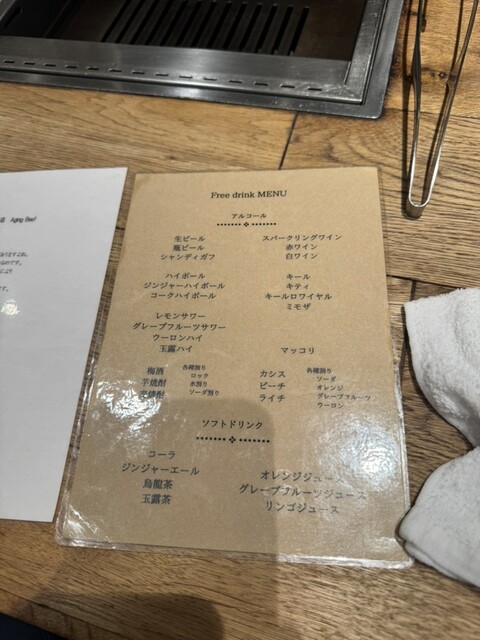 Aging Beef
Free drink MENU
アルコール
生ビール
瓶ビール
シャンディガフ
スパークリングワイン
赤ワイン
白ワイン
ハイボール
ジンジャーハイボール
コークハイボール
キール
キティ
キールロワイヤル
ミモザ
レモンサワー
グレープフルーツサワー
ウーロンハイ
玉露ハイ
マッコリ
梅酒
芋焼酎
麦焼酎
各種割り
ロック
水割り
ソーダ割り
カシス
ピーチ
ライチ
各種割り
ソーダ
オレンジ
グレープフルーツ
ウーロン
ソフトドリンク
コーラ
ジンジャーエール
烏龍茶
玉露茶
オレンジジュース
グレープフルーツジュース
リンゴジュース